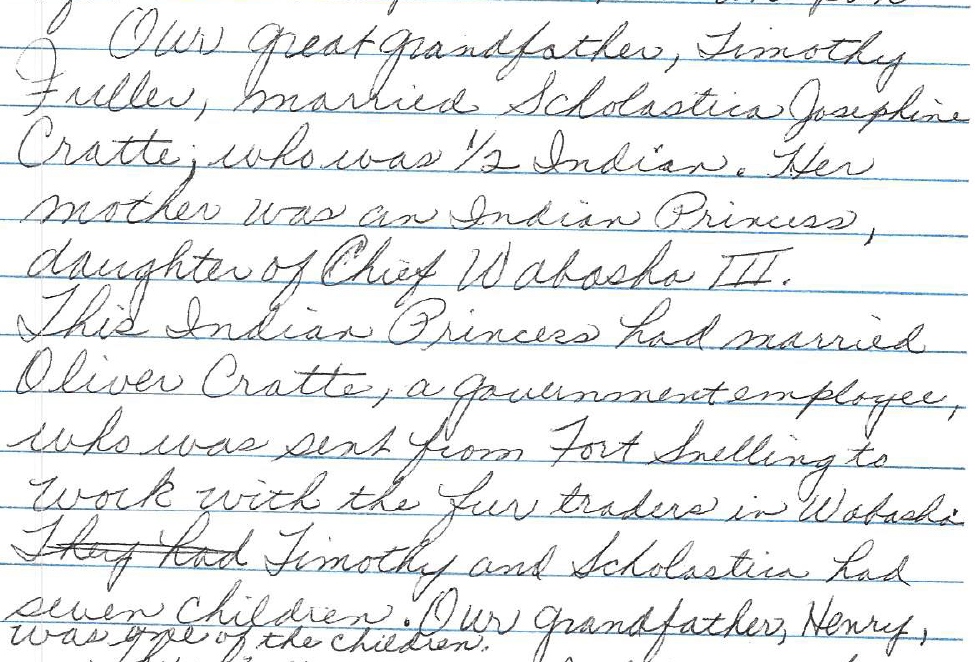 Our great grandfather, Timothy
Fuller, married Scholastica Josephine
Cratte, who was 1/2 Indian. Her
mother was an Indian Princess,
daughter of Chief Wabasha III.
This Indian Princess had married
Oliver Cratte, a government employee,
who was sent from Fort Snelling to
work with the fur traders in Wabasha
They had Timothy and Scholastica had
seven children. Our grandfather, Henry,
was one of the children.